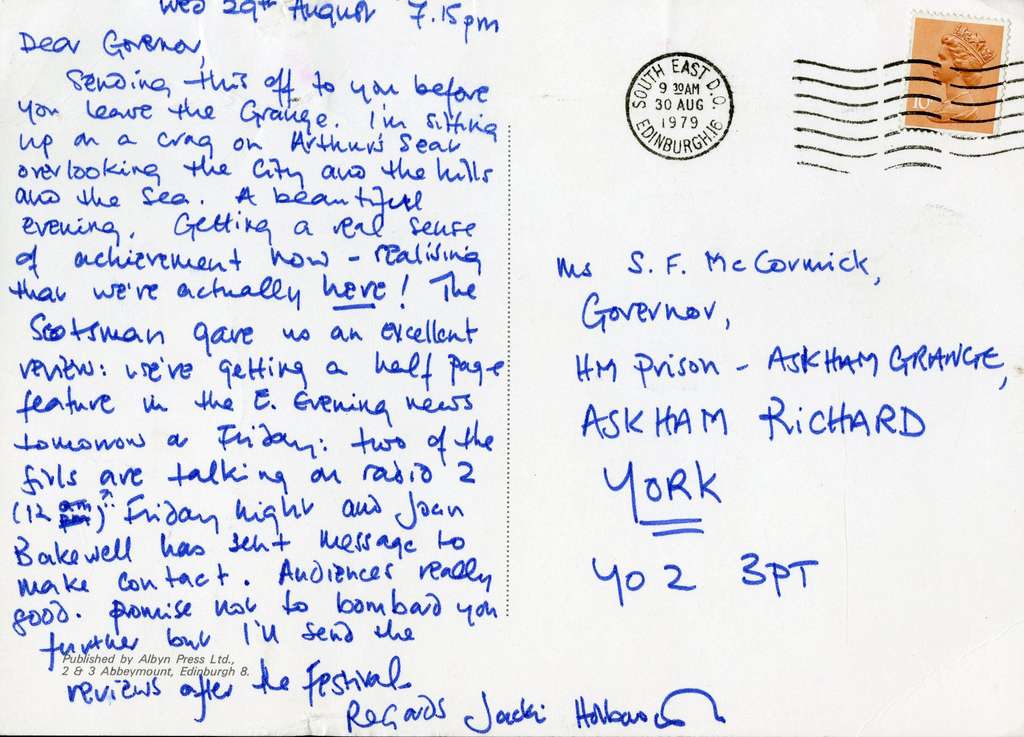 Wed 29th August 7.15pm
Dear Governor,
Sending this off to you before
you leave the Grange. I'm sitting
up on a crag on Arthur's Seat
overlooking the City and the hills
and the sea. A beautiful
evening. Getting a real sense
of achievement now - realising
that we're actually here! The
Scotsman gave us an excellent
review: we're getting a half page
feature in the E. Evening news
tomorrow or Friday: two of the
girls are talking on radio 2
(12 am) Friday night and Joan
Bakewell has sent message to
make contact. Audiences really
good. promise not to bombard you
further but I'll send the
reviews after the Festival
Regards Jacki
Published by Albyn Press Ltd.,
2 & 3 Abbeymount, Edinburgh 8.
SOUTH EAST D.O.
9 30AM
30 AUG
1979
EDINBURGH 16
10
Ms S. F. McCormick,
Governor,
HM Prison - ASKHAM GRANGE,
ASKHAM RICHARD
YORK
YO2 3PT